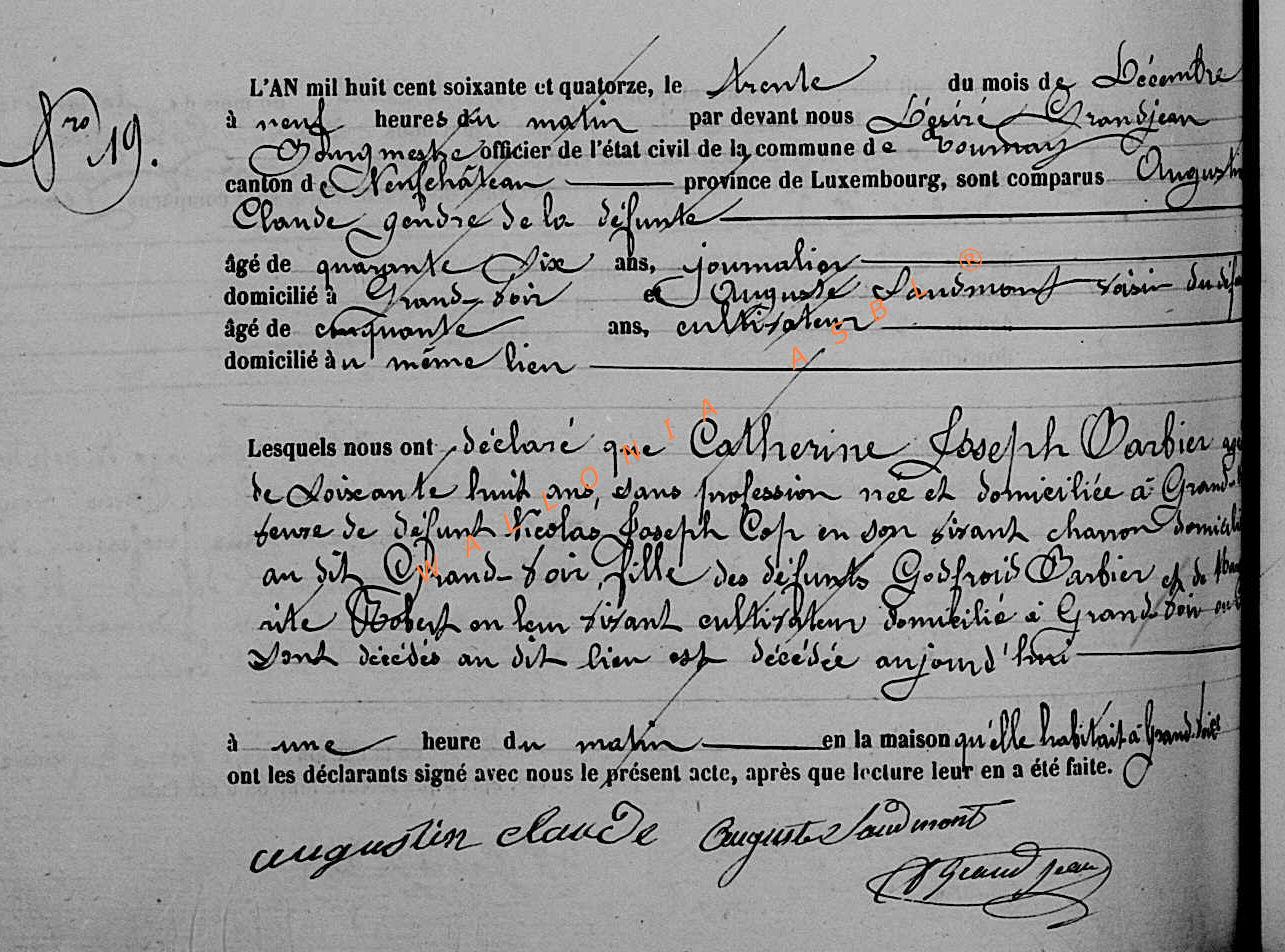 Nro 19.
L'AN mil huit cent soixante et quatorze, le trente du mois de Décembre
à neuf heures du matin par devant nous Désiré Grandjean
Bourgmestre officier de l'état civil de la commune de Tournay
canton de Neufchâteau province de Luxembourg, sont comparus Augustin
Claude gendre de la défunte
âgé de quarante six ans, journalier
domicilié à Grand-voir et Auguste Saudmont voisin du
âgé de cinquante ans, cultivateur
domicilié au même lieu
Lesquels nous ont déclaré que Catherine Joseph Barbier
de Soixante huit ans, sans profession née et domiciliée à Grand-
veuve de défunt Nicolas Joseph Cop en son vivant charron
au dit Grand-voir, fille des défunts Godfroid Barbier et de
rite Robert en leur vivant cultivateur domicilié à Grand-voir
sont décédés au dit lieu est décédée aujourd'hui
à une heure du matin en la maison qu'elle habitait à Grand-voir
ont les déclarants signé avec nous le présent acte, après que lecture leur en a été faite.
augustin claude auguste Saudmont
D Grandjean
WALLONIA ASBL ®